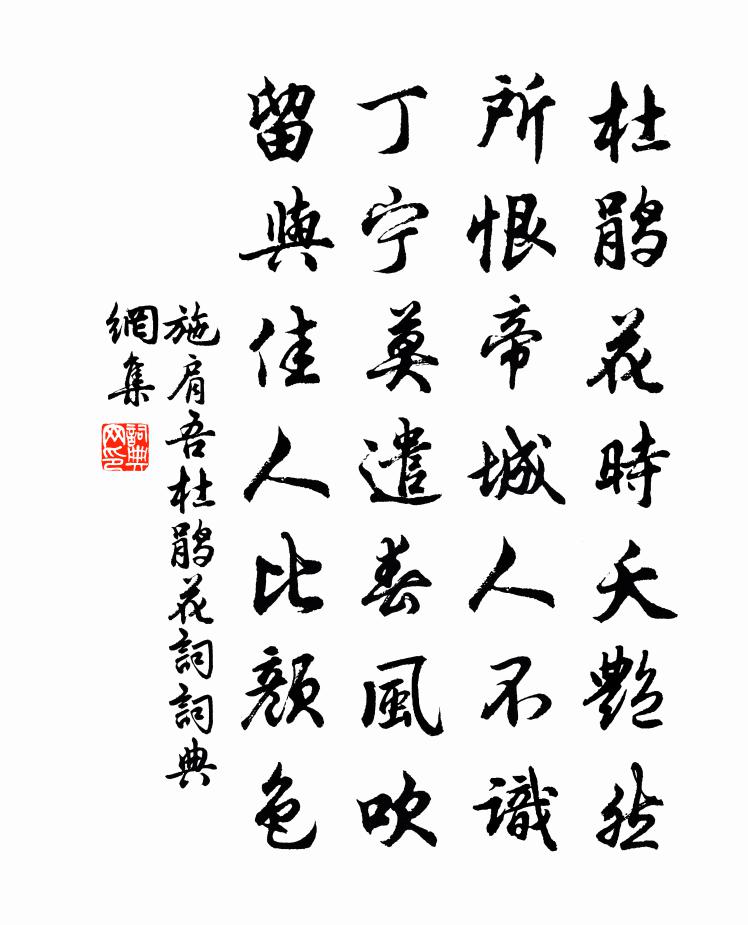 杜鹃花時夭艷然
所恨帝城人不識
丁宁莫遣春風吹
留與佳人比顏色
施肩吾杜鹃花詞詞典
網集
詞典
网印